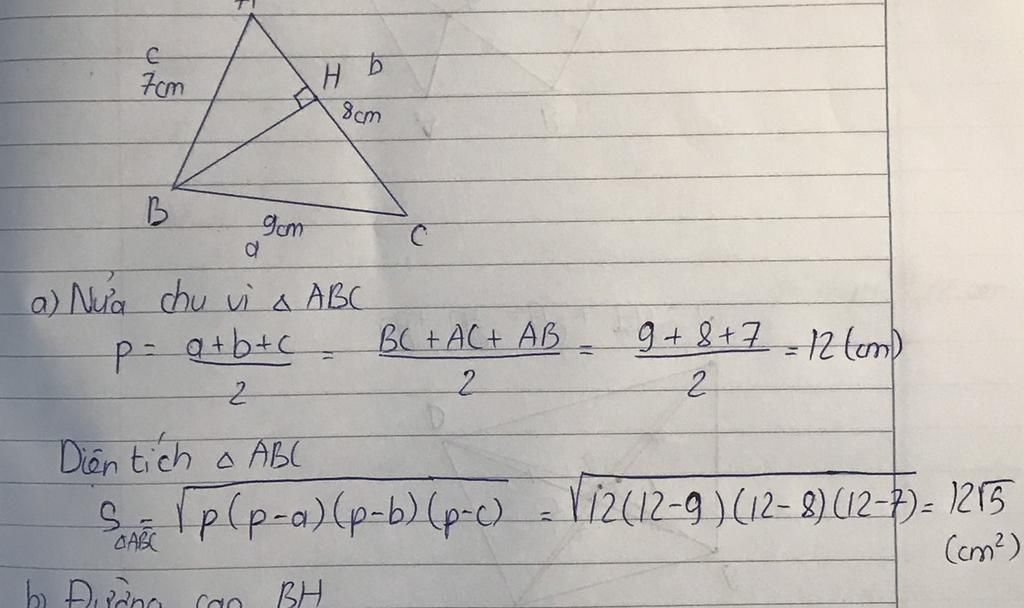 A
c
7cm
H b
8cm
B
9cm
a
C
a) Nửa chu vi △ ABC
p = a+b+c / 2 = BC + AC + AB / 2 = 9 + 8 + 7 / 2 = 12 (cm)
Diện tích △ ABC
S△ABC = √p(p-a)(p-b)(p-c) = √12(12-9)(12-8)(12-7) = 12√5
(cm²)
b) Đường cao BH